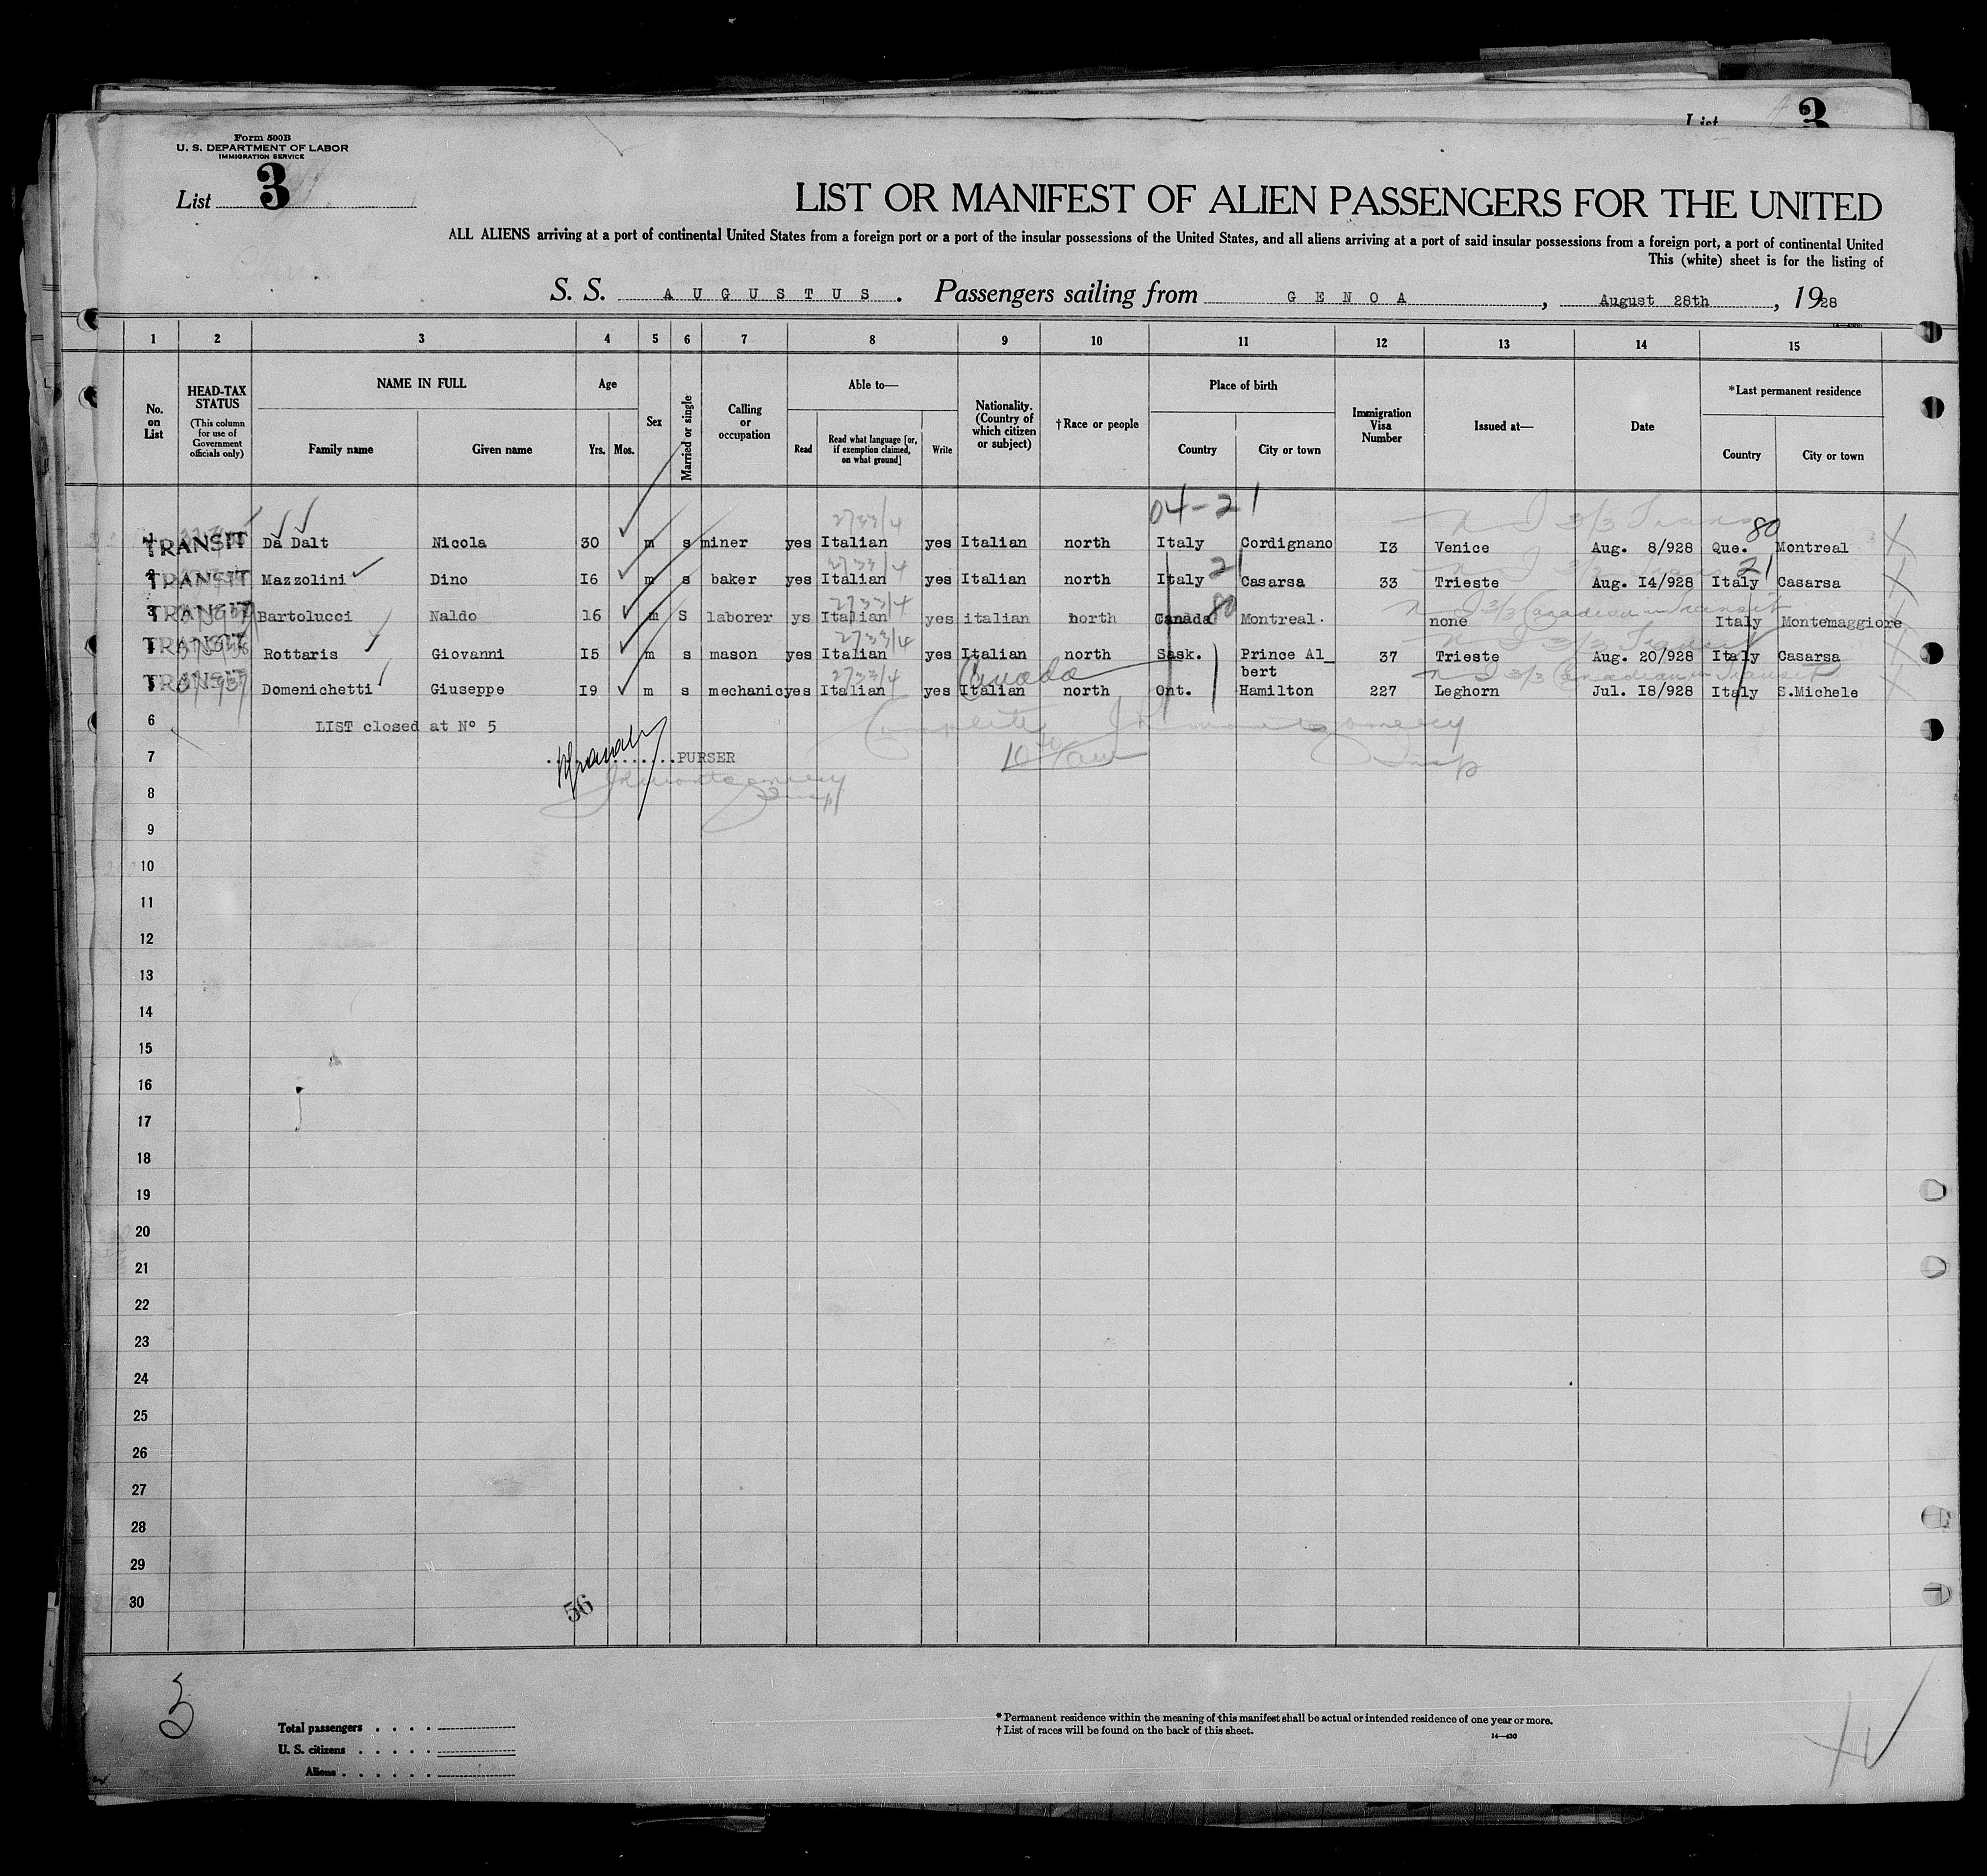 List 3
Form 500B
U. S. DEPARTMENT OF LABOR
IMMIGRATION SERVICE
List 3
LIST OR MANIFEST OF ALIEN PASSENGERS FOR THE UNITED
ALL ALIENS arriving at a port of continental United States from a foreign port or a port of the insular possessions of the United States, and all aliens arriving at a port of said insular possessions from a foreign port, a port of continental United
This (white) sheet is for the listing of
S. S. AUGUSTUS. Passengers sailing from GENOA, August 28th, 1928
1 2 3 4 5 6 7 8 9 10 11 12 13 14 15
No. on List
HEAD-TAX STATUS (This column for use of Government officials only)
NAME IN FULL Family name Given name
Age Yrs. Mos.
Sex
Married or single
Calling or occupation
Able to— Read Read what language [or, if exemption claimed, on what ground] Write
Nationality. (Country of which citizen or subject)
†Race or people
Place of birth Country City or town
Immigration Visa Number
Issued at—
Date
*Last permanent residence Country City or town
04-21
2733/4 80
TRANSIT Da Dalt Nicola 30 m s miner yes Italian yes Italian north Italy Cordignano I3 Venice Aug. 8/928 Que. Montreal
2733/4 21 21
TRANSIT Mazzolini Dino I6 m s baker yes Italian yes Italian north Italy Casarsa 33 Trieste Aug. I4/928 Italy Casarsa
2733/4 80 N I 3/3 Canadian in Transit
3 TRANSIT Bartolucci Naldo 16 m S laborer ys Italian yes italian north Canada Montreal. none Italy Montemaggiore
2733/4
TRANSIT Rottaris Giovanni I5 m s mason yes Italian yes Italian north Sask. Prince Al_bert 37 Trieste Aug. 20/928 Italy Casarsa
2733/4 Canada N I 3/3 Canadian in Transit
TRANSIT Domenichetti Giuseppe I9 m s mechanic yes Italian yes Italian north Ont. Hamilton 227 Leghorn Jul. I8/928 Italy S.Michele
6 LIST closed at Nº 5
7 PURSER
8
9
10
11
12
13
14
15
16
17
18
19
20
21
22
23
24
25
26
27
28
29
30
56
3
Total passengers
U. S. citizens
Aliens
*Permanent residence within the meaning of this manifest shall be actual or intended residence of one year or more.
†List of races will be found on the back of this sheet.
14—430